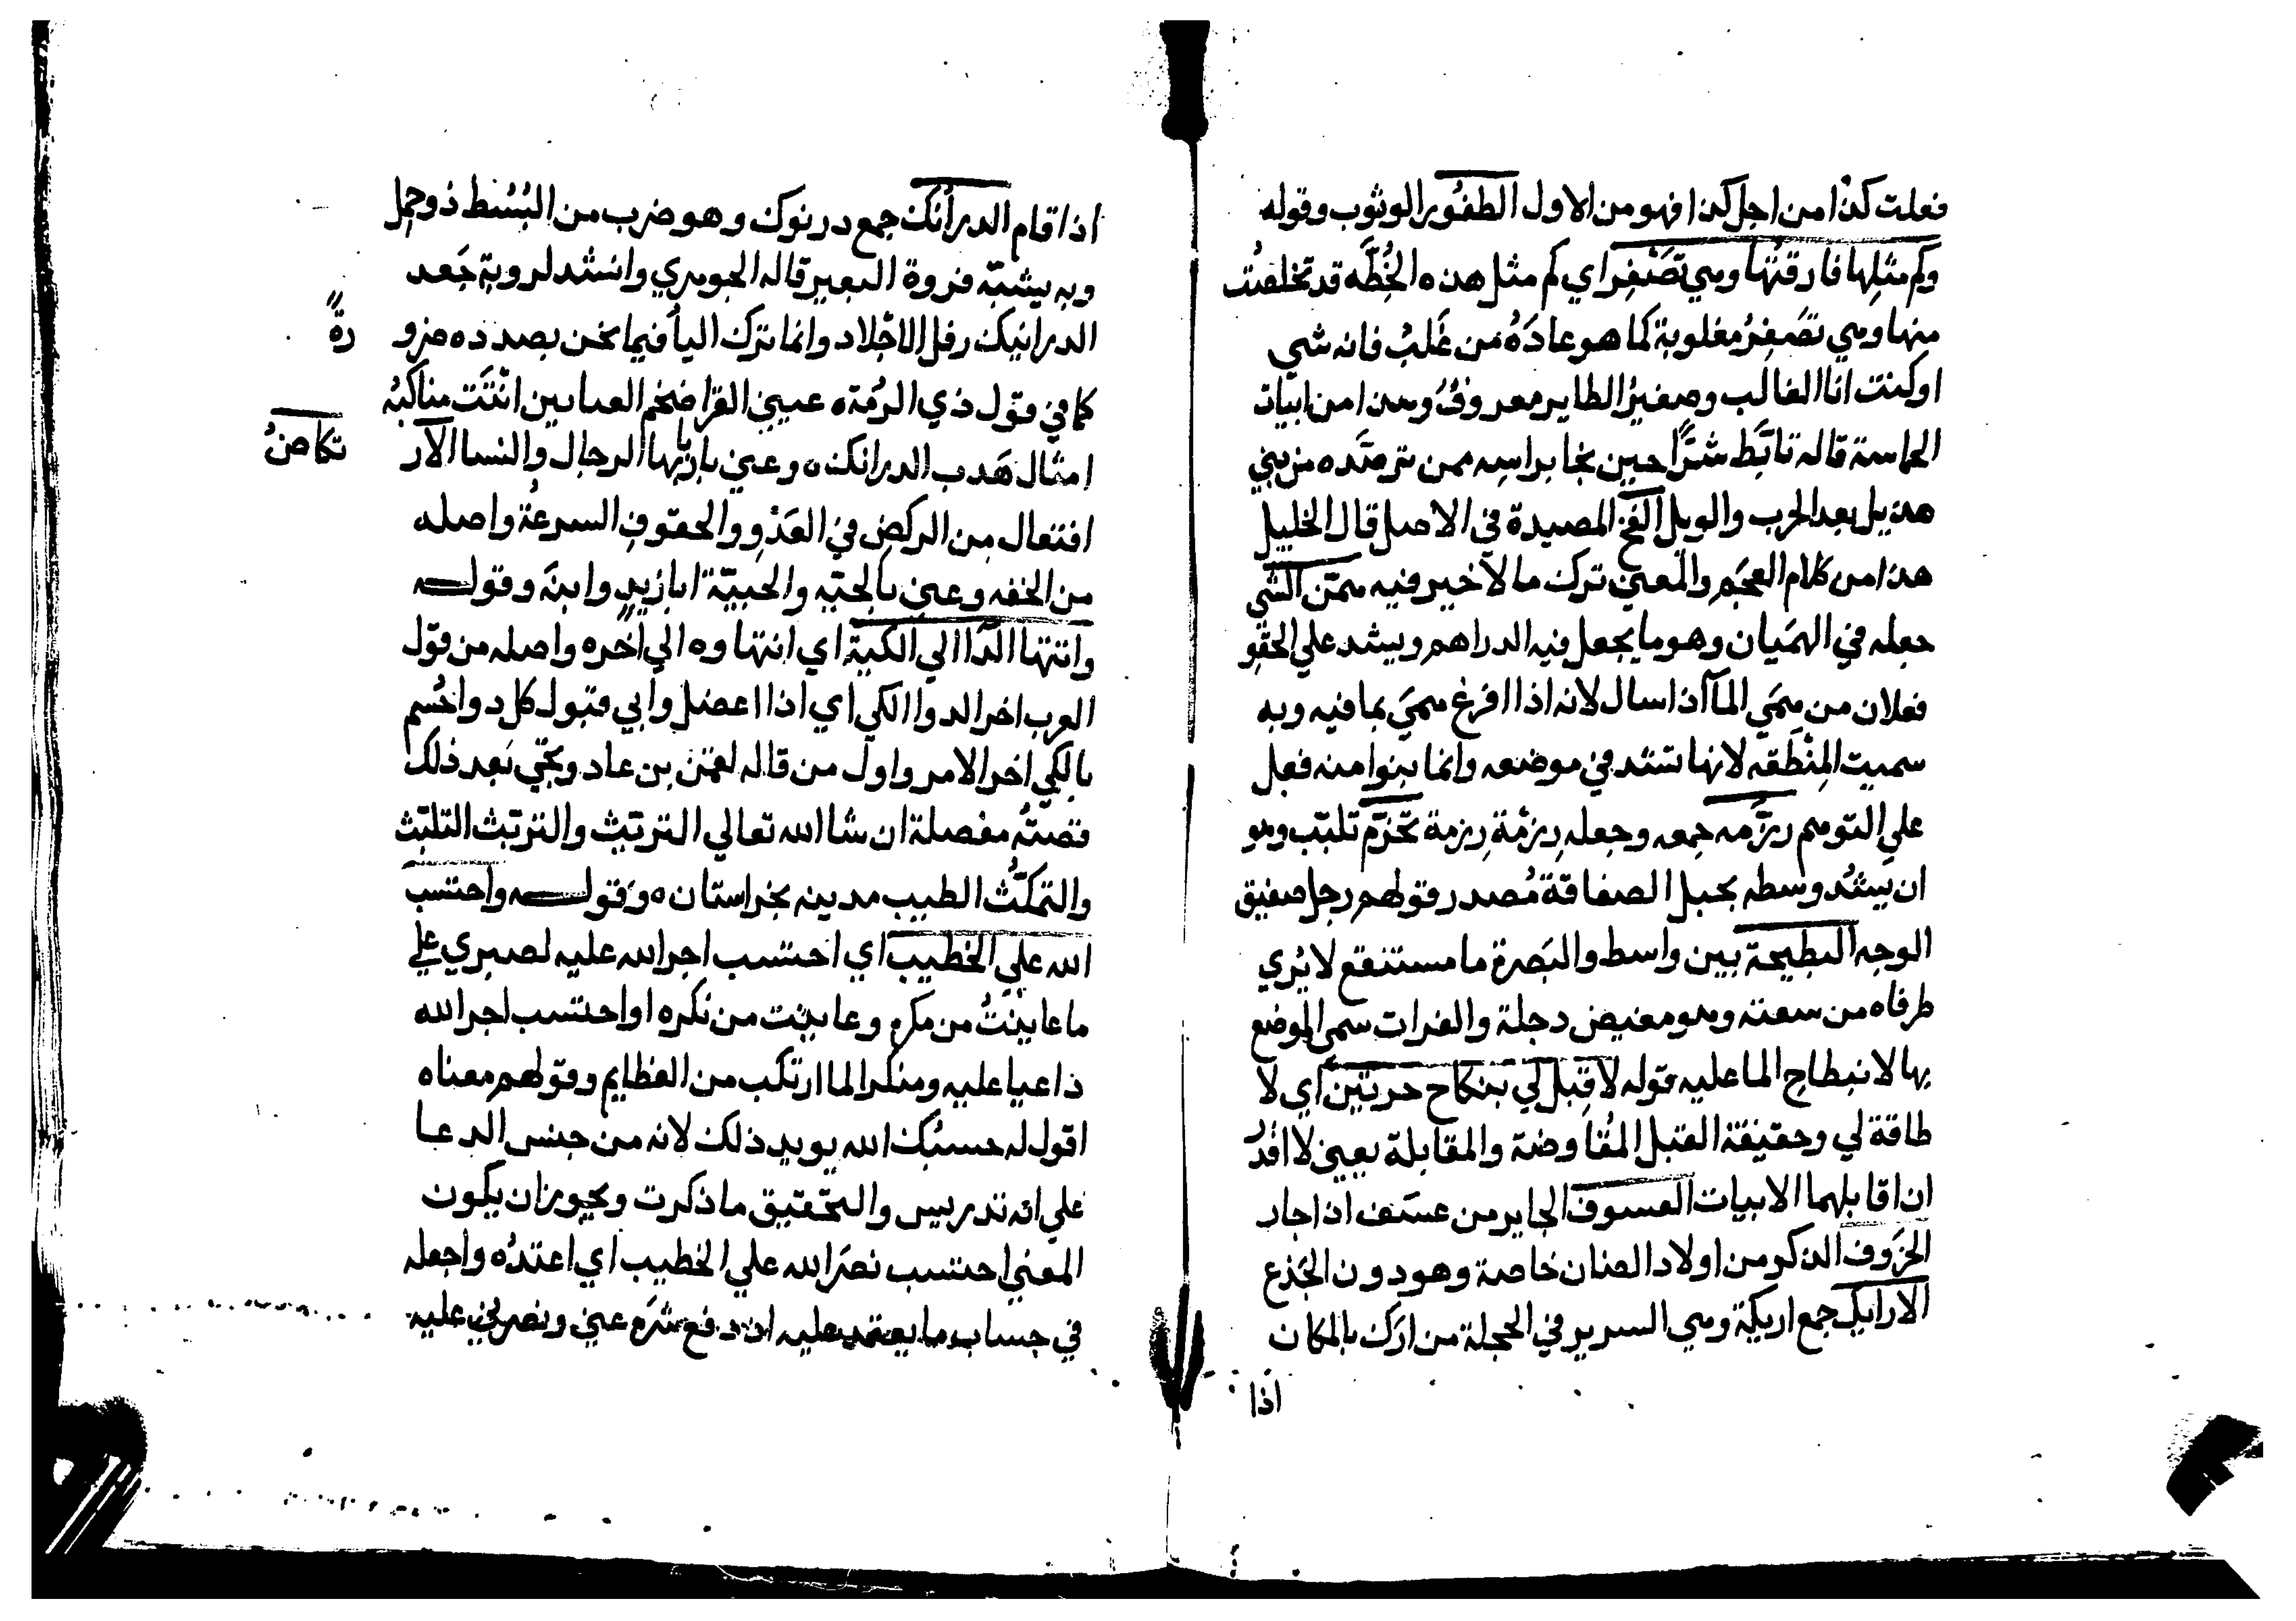 فعلت كذا من اجل كذا فهو من الاول الطفُور الوثوب وقوله
وكم مثلِها فارقتُها وهي تَصْفِر اي كم مثل هذه الخُطَّه قد تخلصتُ
منها وهي تصَفِرُ مغلوبة كما هو عادَةُ من غَلبُ فانه شي
اوكنت انا الغالب وصفيرُ الطاير معروفٌ وهذا من ابيات
الحماسة قاله تابَّط شرًّا حين نجا براسِه ممن ترصَّده من بني
هذيل بعد الحرب والويل الفخ المصيدة في الاصل قال الخليل
هذا من كلام العجَم والمعني ترك ما لا خير فيه همّن الشي
جعله في الهميَان وهو ما يجعل فيه الدراهم ويشد علي الحقِو
فعلان من همَي المآ اذا سال لانه اذا افرغ همَي بما فيه وبه
سميت المِنْطَقه لانها تشد في موضعه وانما بنوا منه فعل
علي التوهم رزَّمه جمعه وجعله رِزمْة رِزمة تحَزَّم تلبّب وهو
ان يشُد وسطه بحبل الصفاقة مُصدر قولهم رجل صفيق
الوجه البطيحة بين واسط والبَصرة ما مستنقع لا يُري
طرفاه من سعته وهو مغيض دجلة والفرات سمي الموضع
بها لانبطاح الما عليه قوله لا قِبَل لي بنكاح حرتين اي لا
طاقة لي وحقيقة القبل المُقاوضة والمقابلة يعني لا اقدُر
ان اقابلهما الابيات العسوف الجاير من عسَف اذا جار
الخرَوف الذكر من اولاد الضان خاصة وهو دون الجَذع
الارايك جمع اريكة وهي السرير في الحجلة من ارَك بالمكان
اذا
اذا قام الدرانَك جمع درنوك وهو ضرب من البُسُط ذو خمل
وبه يشبّه فروة البعير قاله الجوهري وانشد لروبة جَعد
الدرانيك رفل الاجْلاد وانما ترك اليأ فيما نحن بصدده ضرو
رةً
كما في قول ذي الرُمّة ه عبني القرا ضخم العثانين انْبَتَت مناكبُه
امثال هَدب الدرانك ه وعني باربابها الرجال والنسا الآر
تكاضُ
افتعال من الركض في العَدْوِ والحقوفِ السرعةُ واصله
من الخفه وعني بالحيّه والحُييّة ابا زيدٍ وابنَه وقوله
وانتها الدَّا الي الكيّة اي انتهاوه الي اخره واصله من قوْل
العرب اخر الدوا الكي اي اذا اعضل وابي قبول كل دوا حُسم
بالكي اخر الامر واول من قاله لقمن بن عاد ويجَي بَعد ذلك
قصتُه مفصلة ان شا الله تعالي التريّث والتربّث التلبّث
والتمكّث الطيب مدينه بخراستان ه وَقوله واحتسب
الله علي الخطيب اي احتسب اجر الله عليه لصبري علي
ما عاينتُ من مكره وعاينت من نكره او احتسب اجر الله
ذا عيا عليه ومنكرا لما ارتكب من العظايم وقولهم معناه
اقول له حسبُك الله يويد ذلك لانه من جنس الدعا
علي انه تدريس والتحقيق ما ذكرت ويجوز ان يكون
المعني احتسب نصَر الله علي الخطيب اي اعتدُه واجعله
في حساب ما يعتمد عليه ان دفع شره عني ونصرني عليه